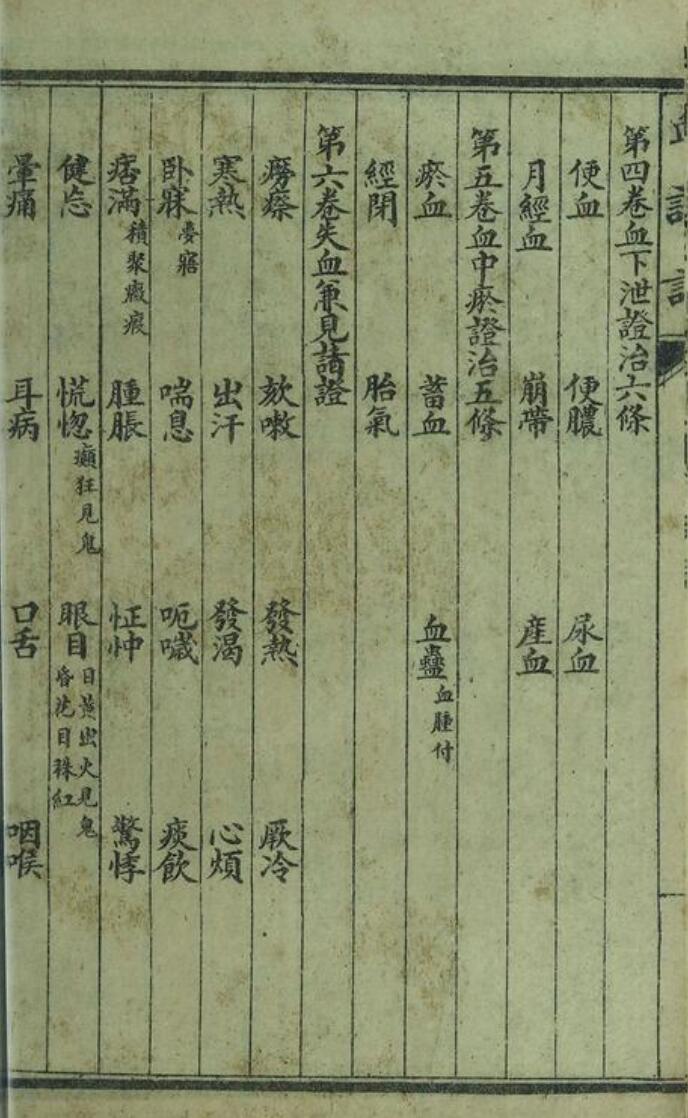 血證論
第四卷血下泄證治六條
便血 便膿 尿血
月經血 崩帶 產血
第五卷血中瘀證治五條
瘀血 蓄血 血蠱血腫付
經閉 胎氣
第六卷失血兼見諸證
癆瘵 欬嗽 發熱 厥冷
寒熱 出汗 發渴 心煩
卧寐夢寤 喘息 呃噦 痰飲
痞滿積聚癥瘕 腫脹 怔忡 驚悸
健忘 慌惚癲狂見鬼 眼目目黃出火見鬼昏花目珠紅
暈痛 耳病 口舌 咽喉